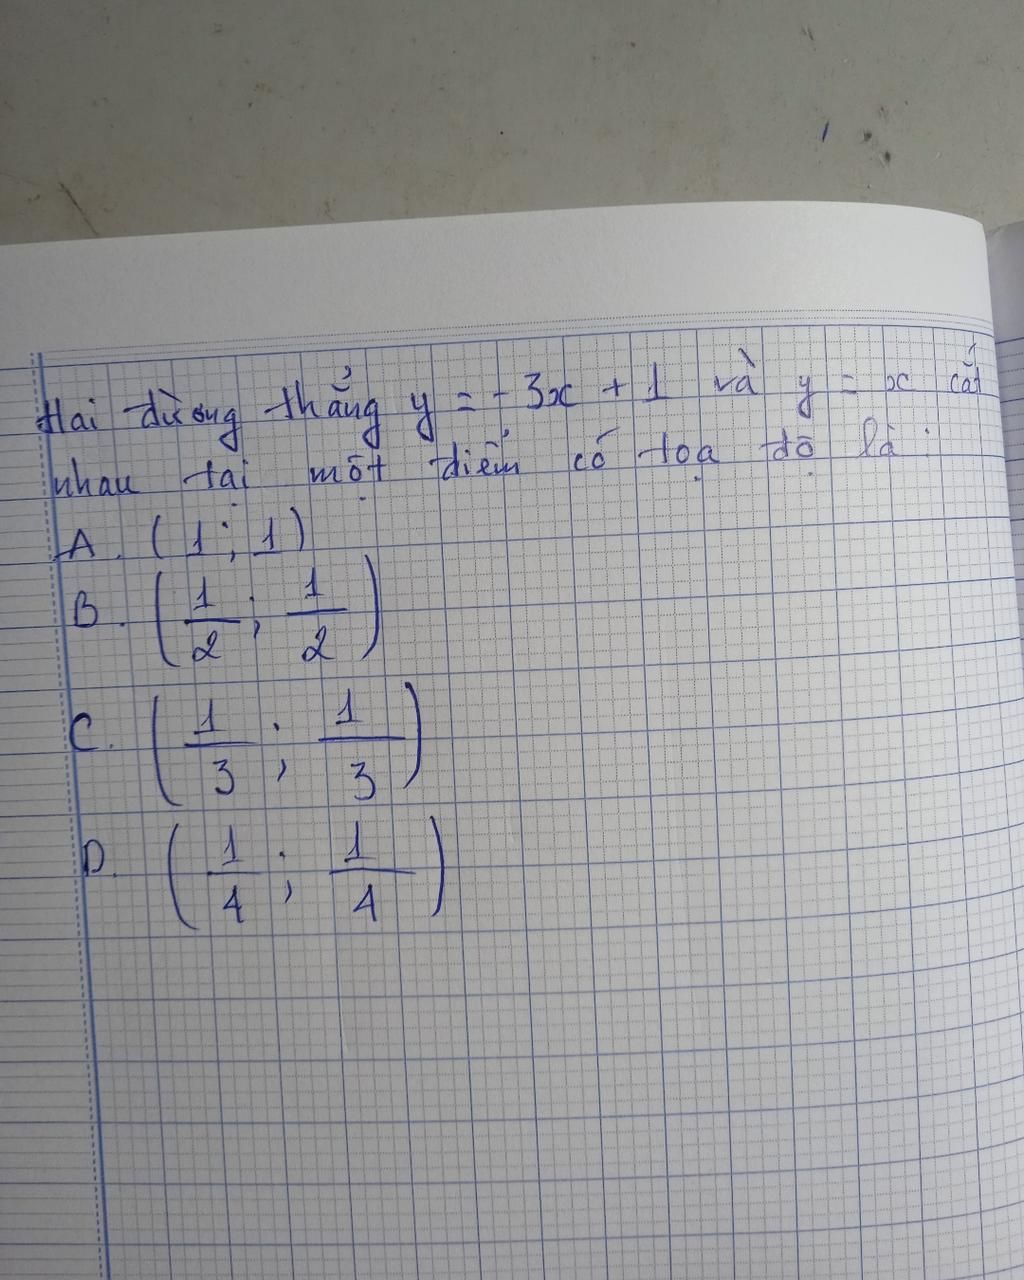 Hai đường thẳng y = - 3x + 1 và y = x cắt
nhau tại một điểm có tọa độ là :
A. (1 ; 1)
B. (1/2 ; 1/2)
C. (1/3 ; 1/3)
D. (1/4 ; 1/4)